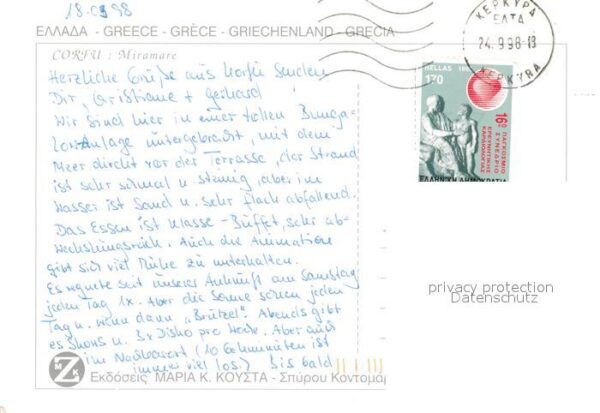 18.09.98
ΕΛΛΑΔΑ - GREECE - GRÈCE - GRIECHENLAND - GRECIA
CORFU : Miramare
Herzliche Grüße aus Korfu senden
Dir, Christiane + Gerhard
Wir sind hier in einer tollen Bunga-
lowanlage untergebracht, mit dem
Meer direkt vor der Terrasse, der Strand
ist sehr schmal u. steinig, aber im
Wasser ist Sand u. sehr flach abfallend.
Das Essen ist Klasse - Büffet, sehr ab-
wechslungsreich. Auch die Animation
gibt sich viel Mühe zu unterhalten.
Es regnete seit unserer Ankunft am Samstag
jeden Tag 1x. Aber die Sonne schien jeden
Tag u. wenn dann „Brützel". Abends gibt
es Shows u. 3x Disko pro Woche. Aber auch
im Nachbarort (10 Gehminuten ist
immer viel los.) Bis bald
ΚΕΡΚΥΡΑ
ΕΛΤΑ
24.9.98-13
KERKYRA
HELLAS
170
16ο ΠΑΓΚΟΣΜΙΟ
ΣΥΝΕΔΡΙΟ
ΕΡΕΥΝΗΤΙΚΗΣ
ΚΑΡΔΙΟΛΟΓΙΑΣ
ΕΛΛΗΝΙΚΗ ΔΗΜΟΚΡΑΤΙΑ
privacy protection
Datenschutz
MK
Εκδόσεις ΜΑΡΙΑ Κ. ΚΟΥΣΤΑ - Σπύρου Κοντομάρ